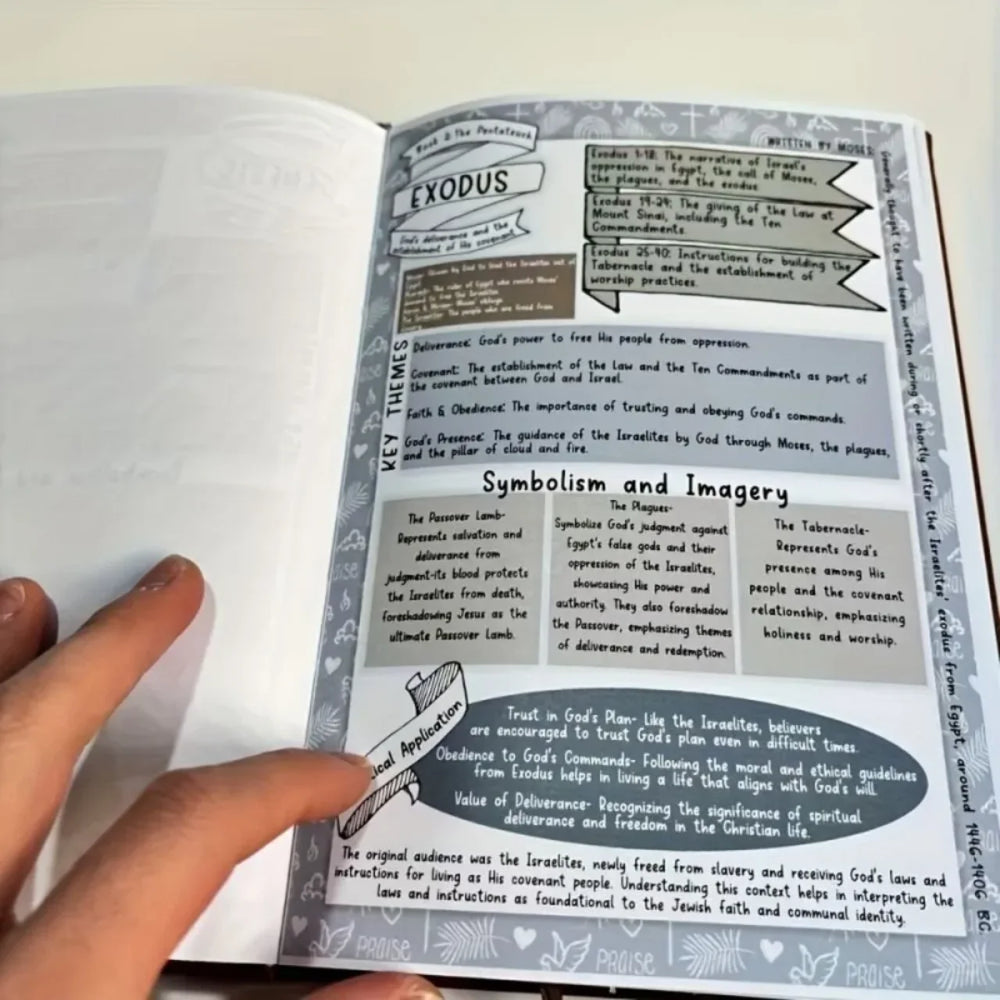 Book 2: The Pentateuch
EXODUS
God's deliverance and the
establishment of His covenant
WRITTEN BY MOSES:
Generally thought to have been written during or shortly after the Israelites' exodus from Egypt, around 1446-1406 BC
Exodus 1-18: The narrative of Israel's
oppression in Egypt, the call of Moses,
the plagues, and the exodus
Exodus 19-24: The giving of the Law at
Mount Sinai, including the Ten
Commandments.
Exodus 25-40: Instructions for building the
Tabernacle and the establishment of
worship practices.
Moses: Chosen by God to lead the Israelites out of
Egypt
Pharaoh: The ruler of Egypt who resists Moses'
demand to free the Israelites
Aaron & Miriam: Moses' siblings
The Israelites: The people who are freed from
KEY THEMES
Deliverance: God's power to free His people from oppression.
Covenant: The establishment of the Law and the Ten Commandments as part of
the covenant between God and Israel.
Faith & Obedience: The importance of trusting and obeying God's commands.
God's Presence: The guidance of the Israelites by God through Moses, the plagues,
and the pillar of cloud and fire.
Symbolism and Imagery
The Passover Lamb-
Represents salvation and
deliverance from
judgment-its blood protects
the Israelites from death,
foreshadowing Jesus as the
ultimate Passover Lamb.
The Plagues-
Symbolize God's judgment against
Egypt's false gods and their
oppression of the Israelites,
showcasing His power and
authority. They also foreshadow
the Passover, emphasizing themes
of deliverance and redemption.
The Tabernacle-
Represents God's
presence among His
people and the covenant
relationship, emphasizing
holiness and worship.
ical Application
Trust in God's Plan- Like the Israelites, believers
are encouraged to trust God's plan even in difficult times.
Obedience to God's Commands- Following the moral and ethical guidelines
from Exodus helps in living a life that aligns with God's will.
Value of Deliverance- Recognizing the significance of spiritual
deliverance and freedom in the Christian life.
The original audience was the Israelites, newly freed from slavery and receiving God's laws and
instructions for living as His covenant people. Understanding this context helps in interpreting the
laws and instructions as foundational to the Jewish faith and communal identity.
PRAISE
PRAISE
PRAISE